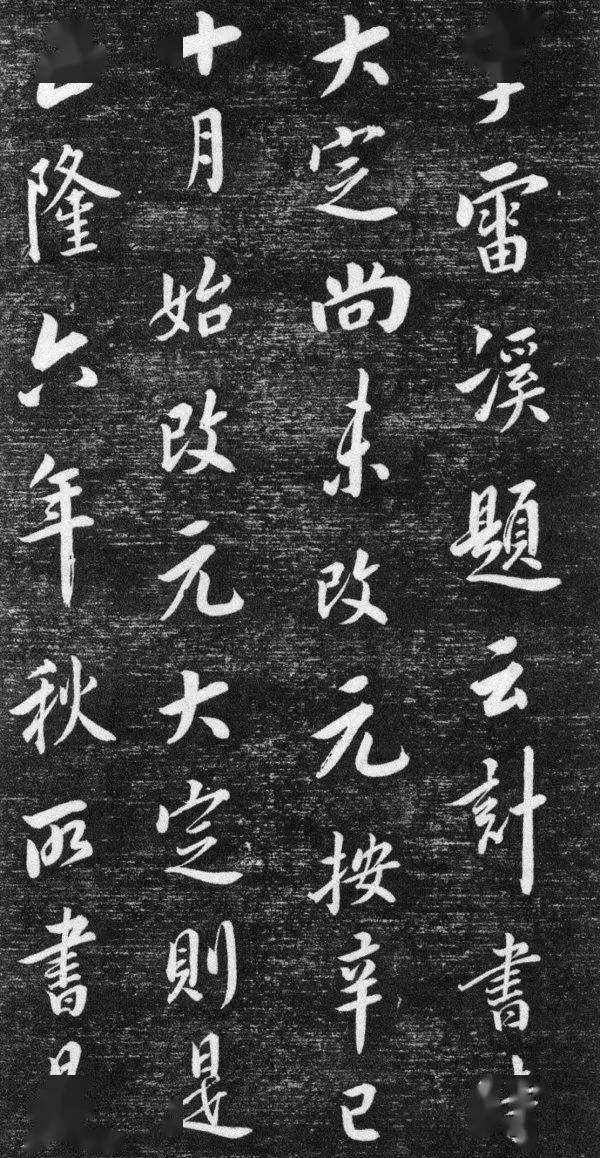 雷溪題云計書
大定尚未改元按辛巳
十月始改元大定則是
隆六年秋所書